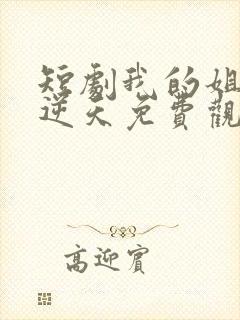 短劇我的姐
逆天免費觀
高迎賓